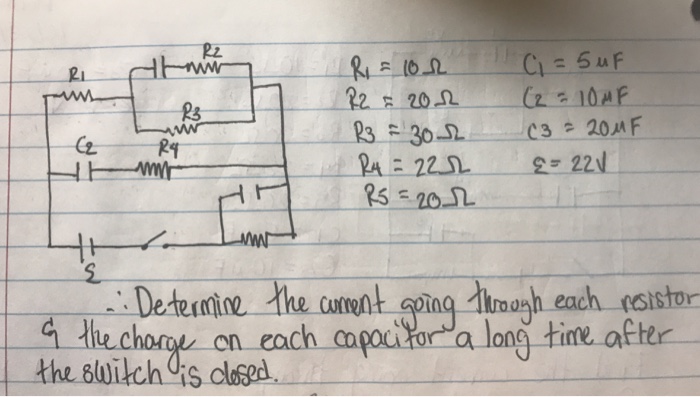 R2
R1
R3
C2
R4
ε
R1 = 10 Ω
R2 = 20 Ω
R3 = 30 Ω
R4 = 22 Ω
R5 = 20 Ω
C1 = 5 uF
C2 = 10 MF
C3 = 20 MF
ε = 22V
∴ Determine the current going through each resistor
& the charge on each capacitor a long time after
the switch is closed.